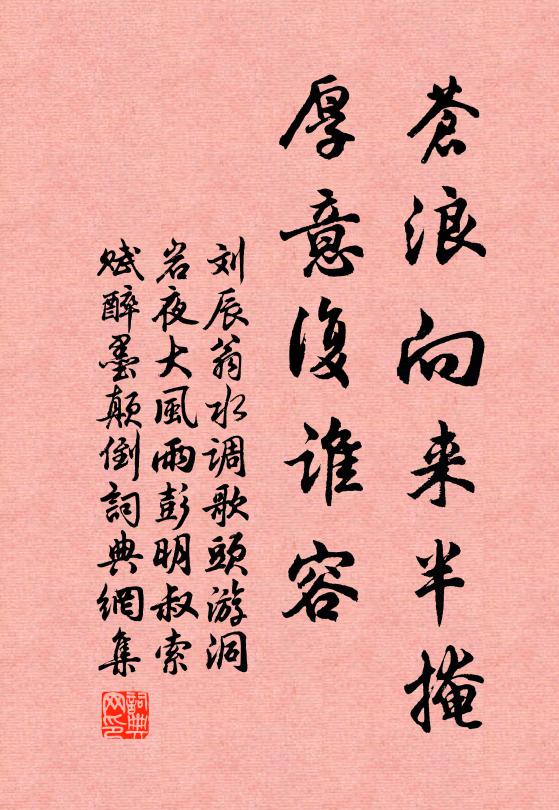 蒼浪向来半掩
厚意復谁容
刘辰翁水调歌頭游洞
岩夜大風雨彭明叔索
赋醉墨颠倒詞典網集
詞典网印